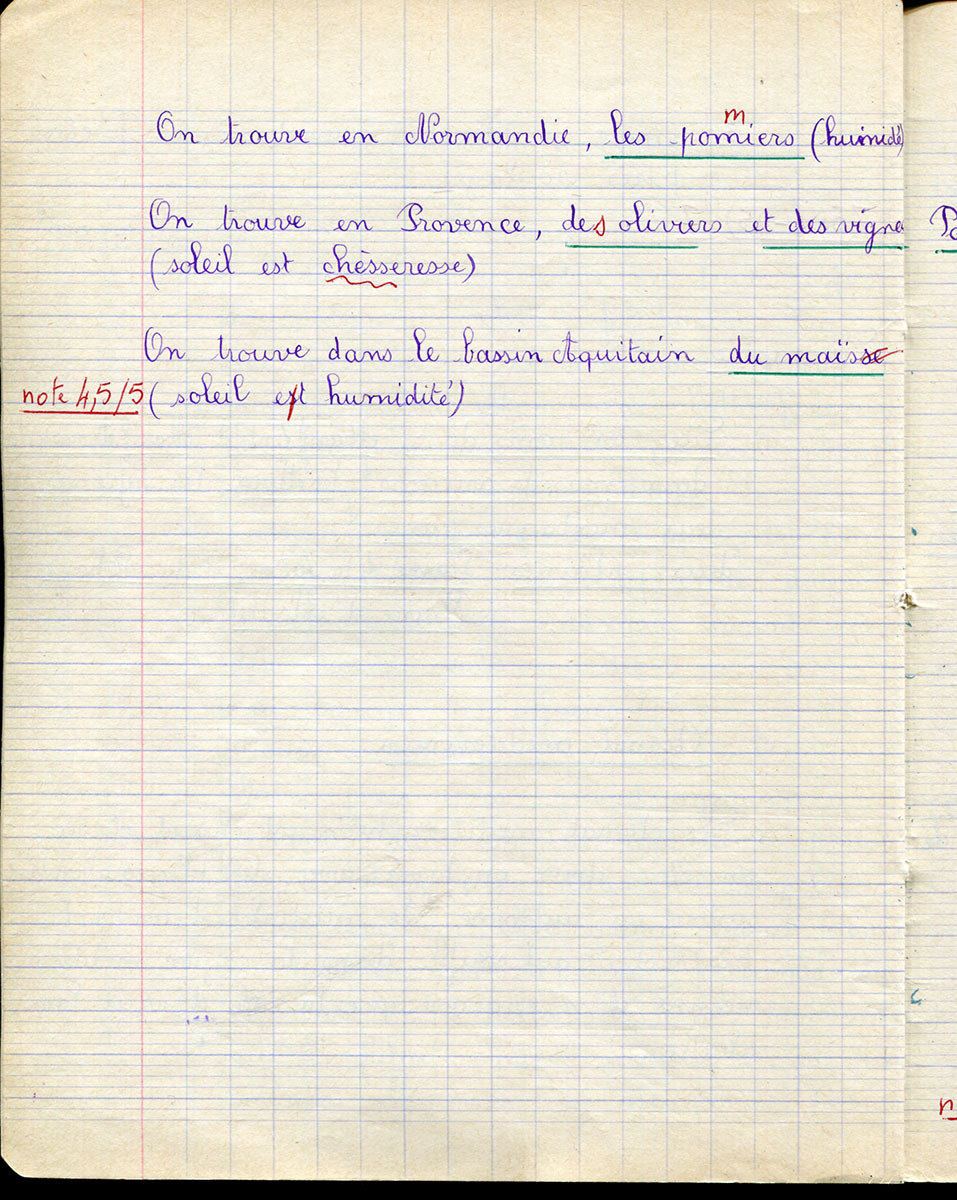 m
On trouve en Normandie, les pomiers (humidé
On trouve en Provence, des oliviers et des vigne
(soleil est chèsseresse)
On trouve dans le bassin Aquitain du maïsse
note 4,5/5 (soleil est humidité)